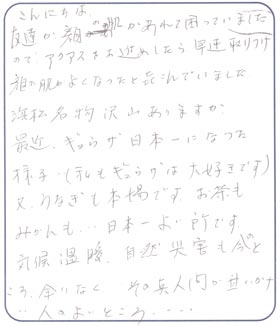 こんにちは。
友達が顔の肌があれて困っていました
ので アクアスをお進めしたら早速取りつけ
顔の肌がよくなったと喜こんでいました
浜松名物沢山ありますが
最近、ギョウザ日本一になった
様子(私もギョウザは大好きです)
又、うなぎも本場です。お茶も
みかんも…日本一よい所です
気候温暖、自然災害も今の
ところ余りなく その
人のよいところ.....